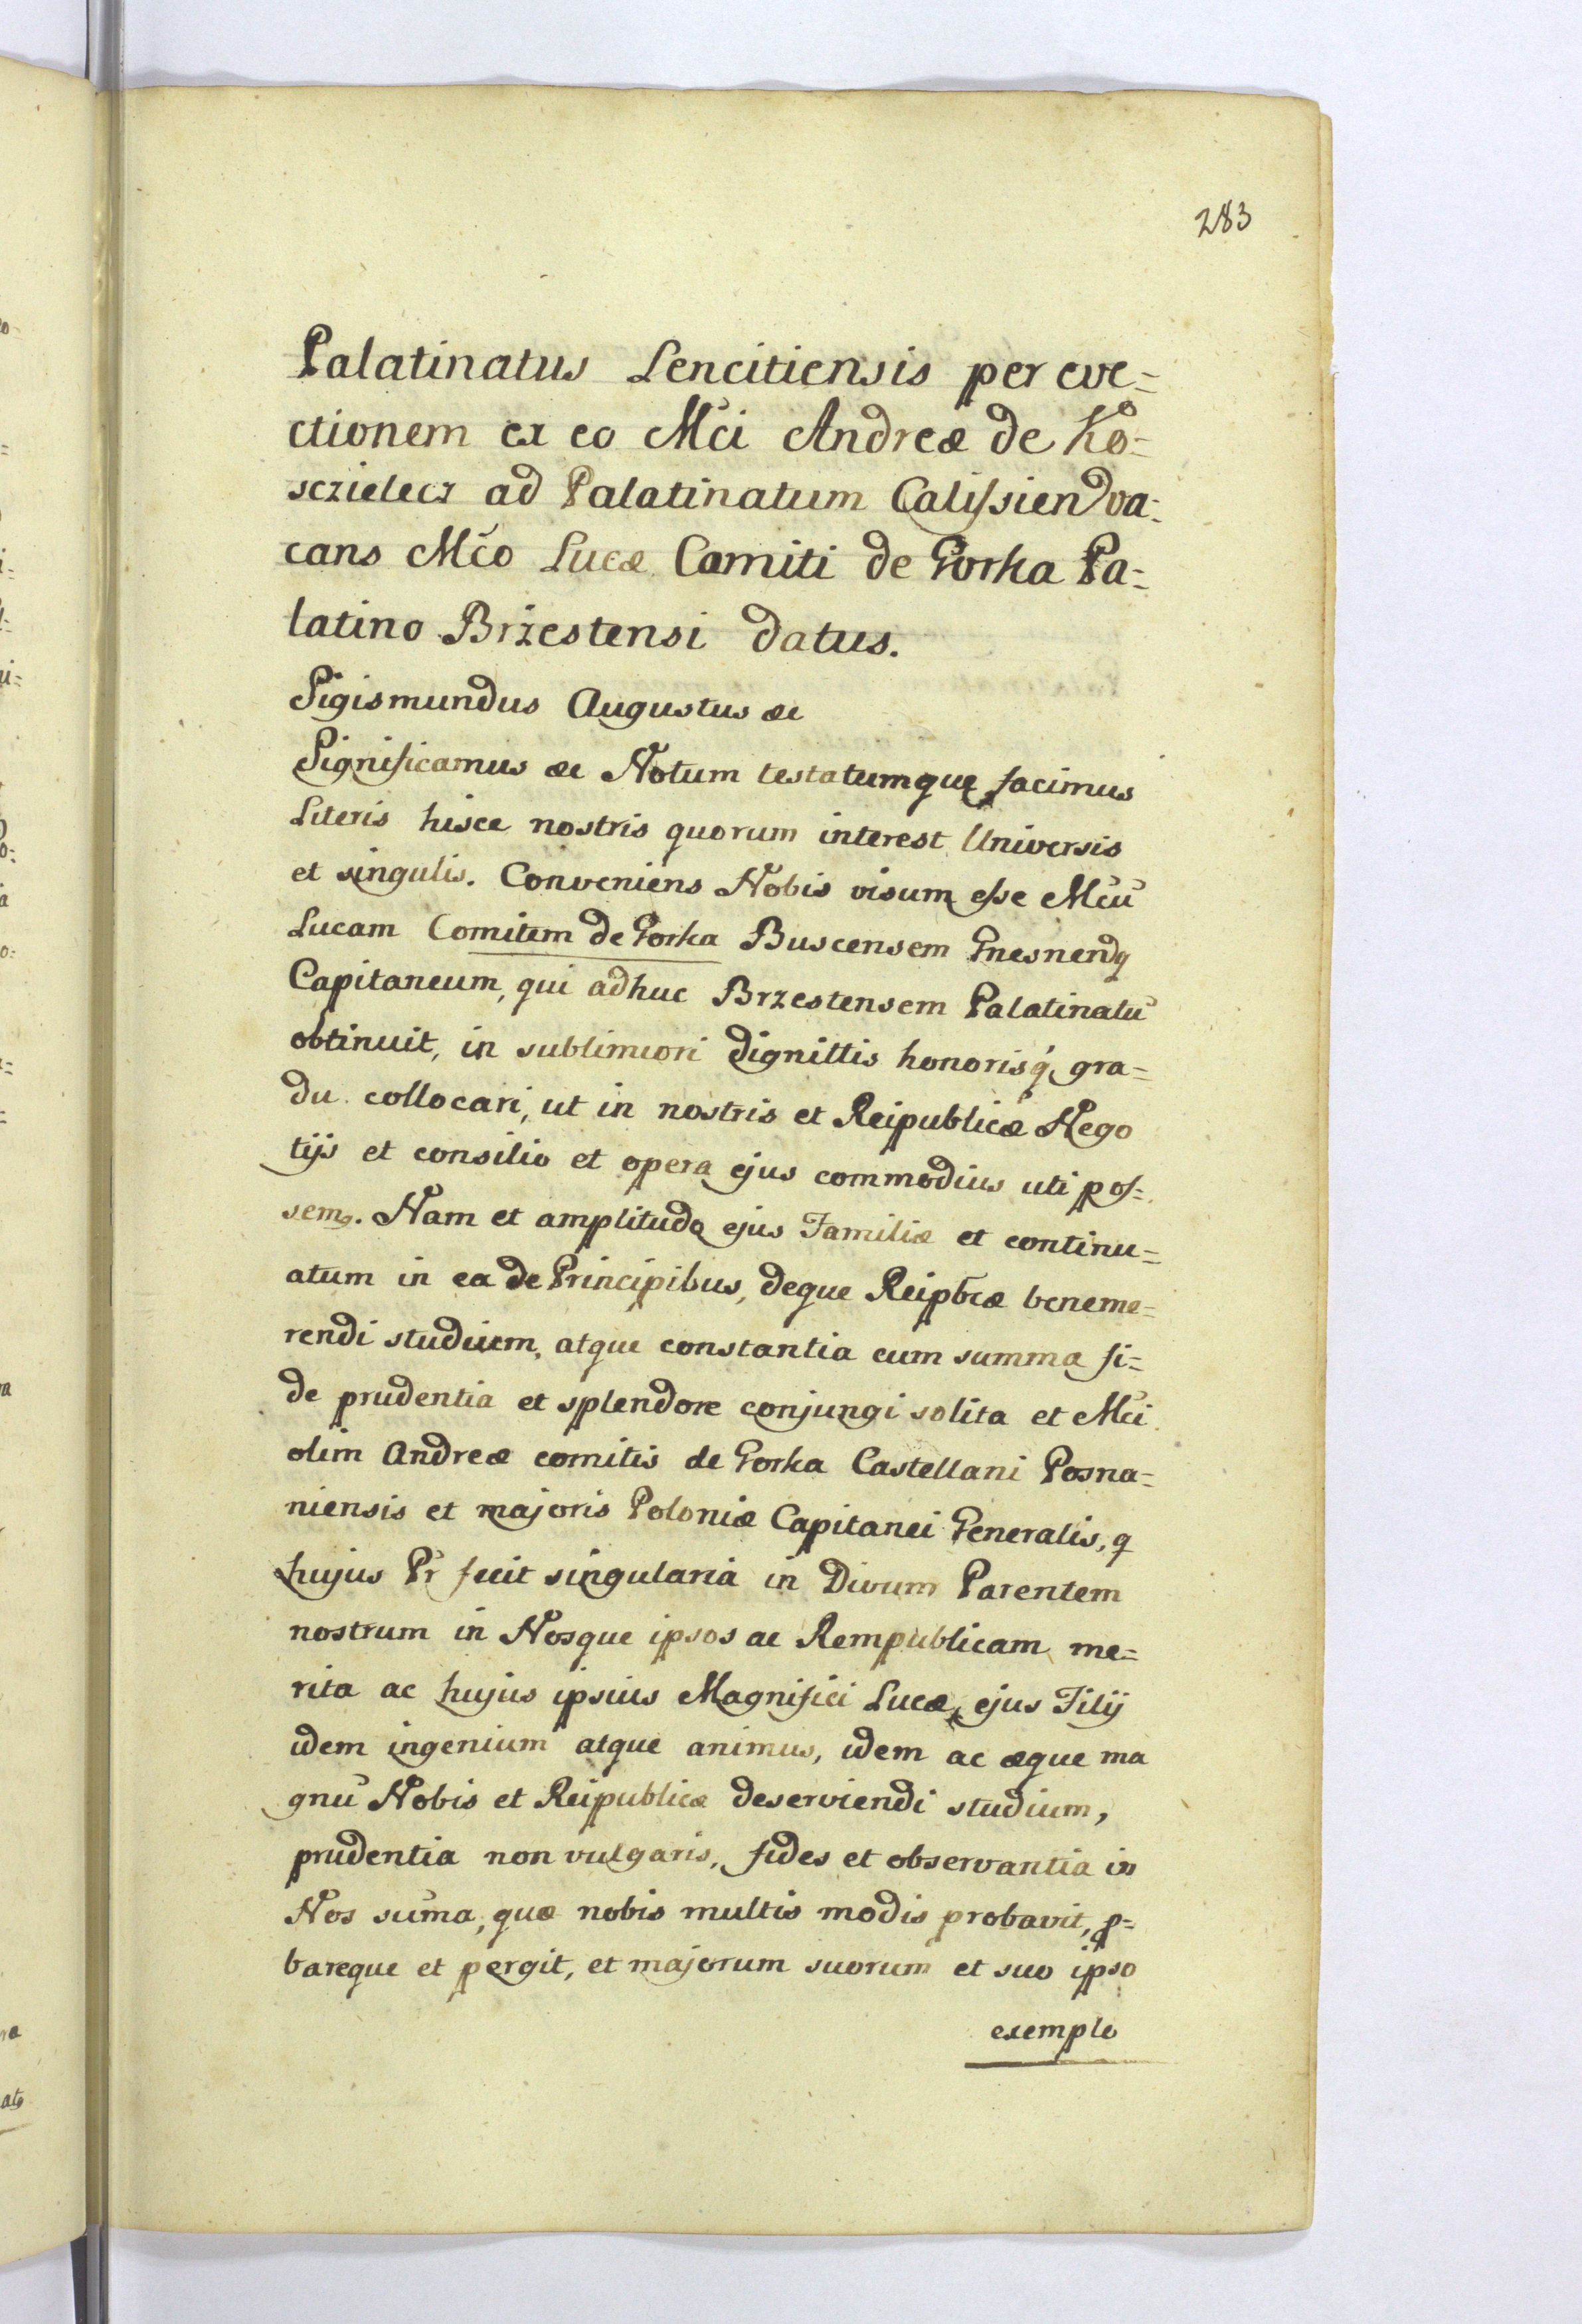 283
Palatinatus Lencitiensis per eve=
ctionem ex eo Mci Andreæ de Ko=
sczielecz ad Palatinatum Calissien va=
cans Mco Lucæ Comiti de Gorka Pa=
latino Brzestensi datus.
Sigismundus Augustus &c
Significamus &c Notum testatumque facimus
Literis hisce nostris quorum interest Universis
et singulis. Conveniens Nobis visum esse Mcū
Lucam Comitem de Gorka Buscensem Gnesnenq
Capitaneum, qui adhuc Brzestensem Palatinatū
obtinuit, in sublimiori dignittis honorisq́ gra=
du collocari, ut in nostris et Reipublicæ Nego
tijs et consilio et opera ejus commodius uti pos=
sem9. Nam et amplitudo ejus Familiæ et continu=
atum in ea de Principibus, deque Reipbcæ beneme=
rendi studium, atque constantia cum summa fi=
de prudentia et splendore conjungi solita et Mci
olim Andreæ comitis de Gorka Castellani Posna=
niensis et majoris Poloniæ Capitanei Generalis, q
hujus Pr fuit singularia in Divum Parentem
nostrum in Nosque ipsos ac Rempublicam me=
rita ac hujus ipsius Magnifici Lucæ, ejus Filij
idem ingenium atque animus, idem ac æque ma
gnū Nobis et Reipublicæ deserviendi studium,
prudentia non vulgaris, fides et observantia in
Nos suma, quæ nobis multis modis probavit, p=
bareque et pergit, et majorum suorum et suo ipso
exemplo